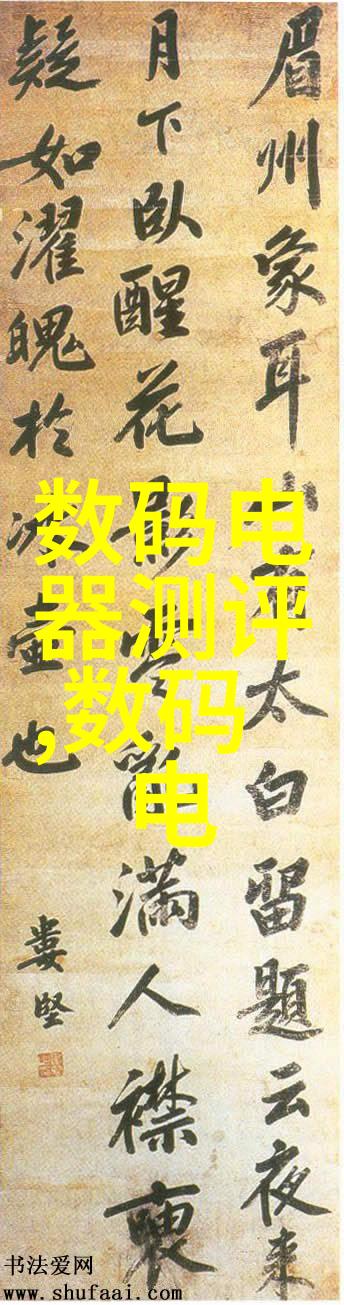 眉州象耳山有太白留題云夜来
月下臥醒花影零亂滿人襟
疑如濯魄於冰壺也
婁堅
数码电
器测评
,数码
电
书法爱网
www.shufaai.com